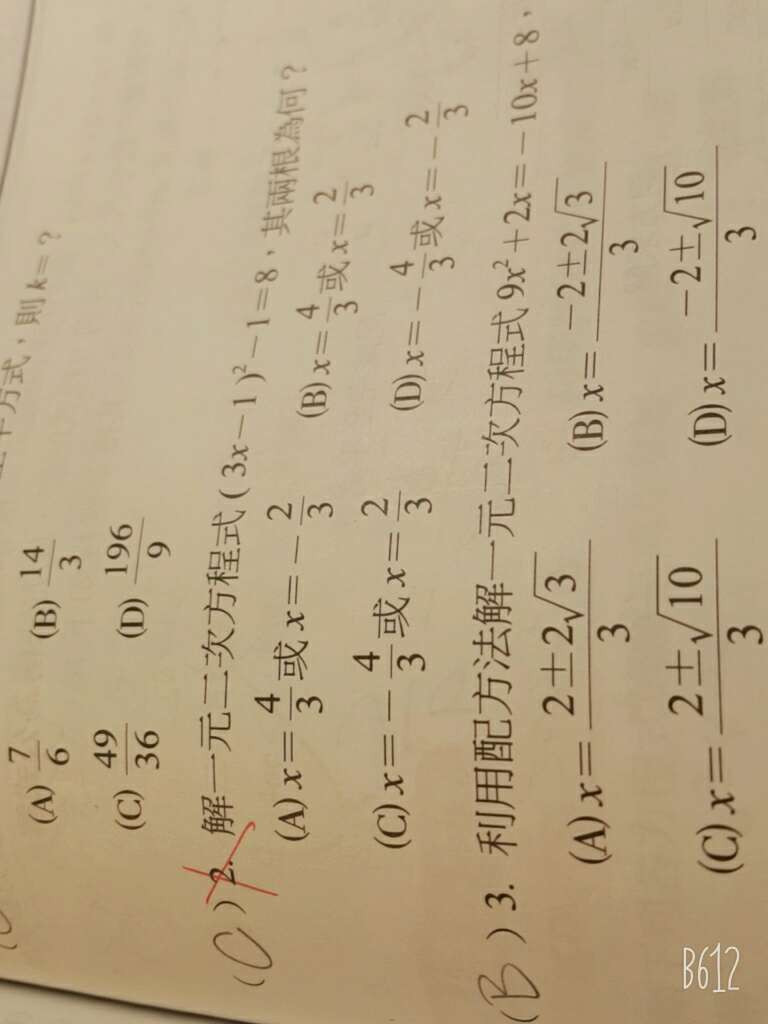 方式，則k=？
(A) 7/6 (B) 14/3
(C) 49/36 (D) 196/9
(C) 2. 解一元二次方程式(3x－1)²－1=8，其兩根為何？
(A) x=4/3或x=－2/3 (B) x=4/3或x=2/3
(C) x=－4/3或x=2/3 (D) x=－4/3或x=－2/3
(B) 3. 利用配方法解一元二次方程式9x²+2x=－10x+8，
(A) x=2±2√3/3 (B) x=－2±2√3/3
(C) x=2±√10/3 (D) x=－2±√10/3
B612